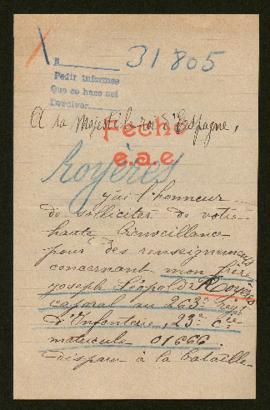 R 31805
Pedir informes
Que se hace así
Devolver
A sa Majesté le roi d'Espagne,
Fecho
e.a.e.
Royères
J'ai l'honneur
de solliciter de votre
haute Bienveillance
pour des renseignements
concernant mon frère
Joseph Léopold Royères
caporal au 263e
d'Infanterie, 23e Cie
matricule 01666.
disparu à la bataille